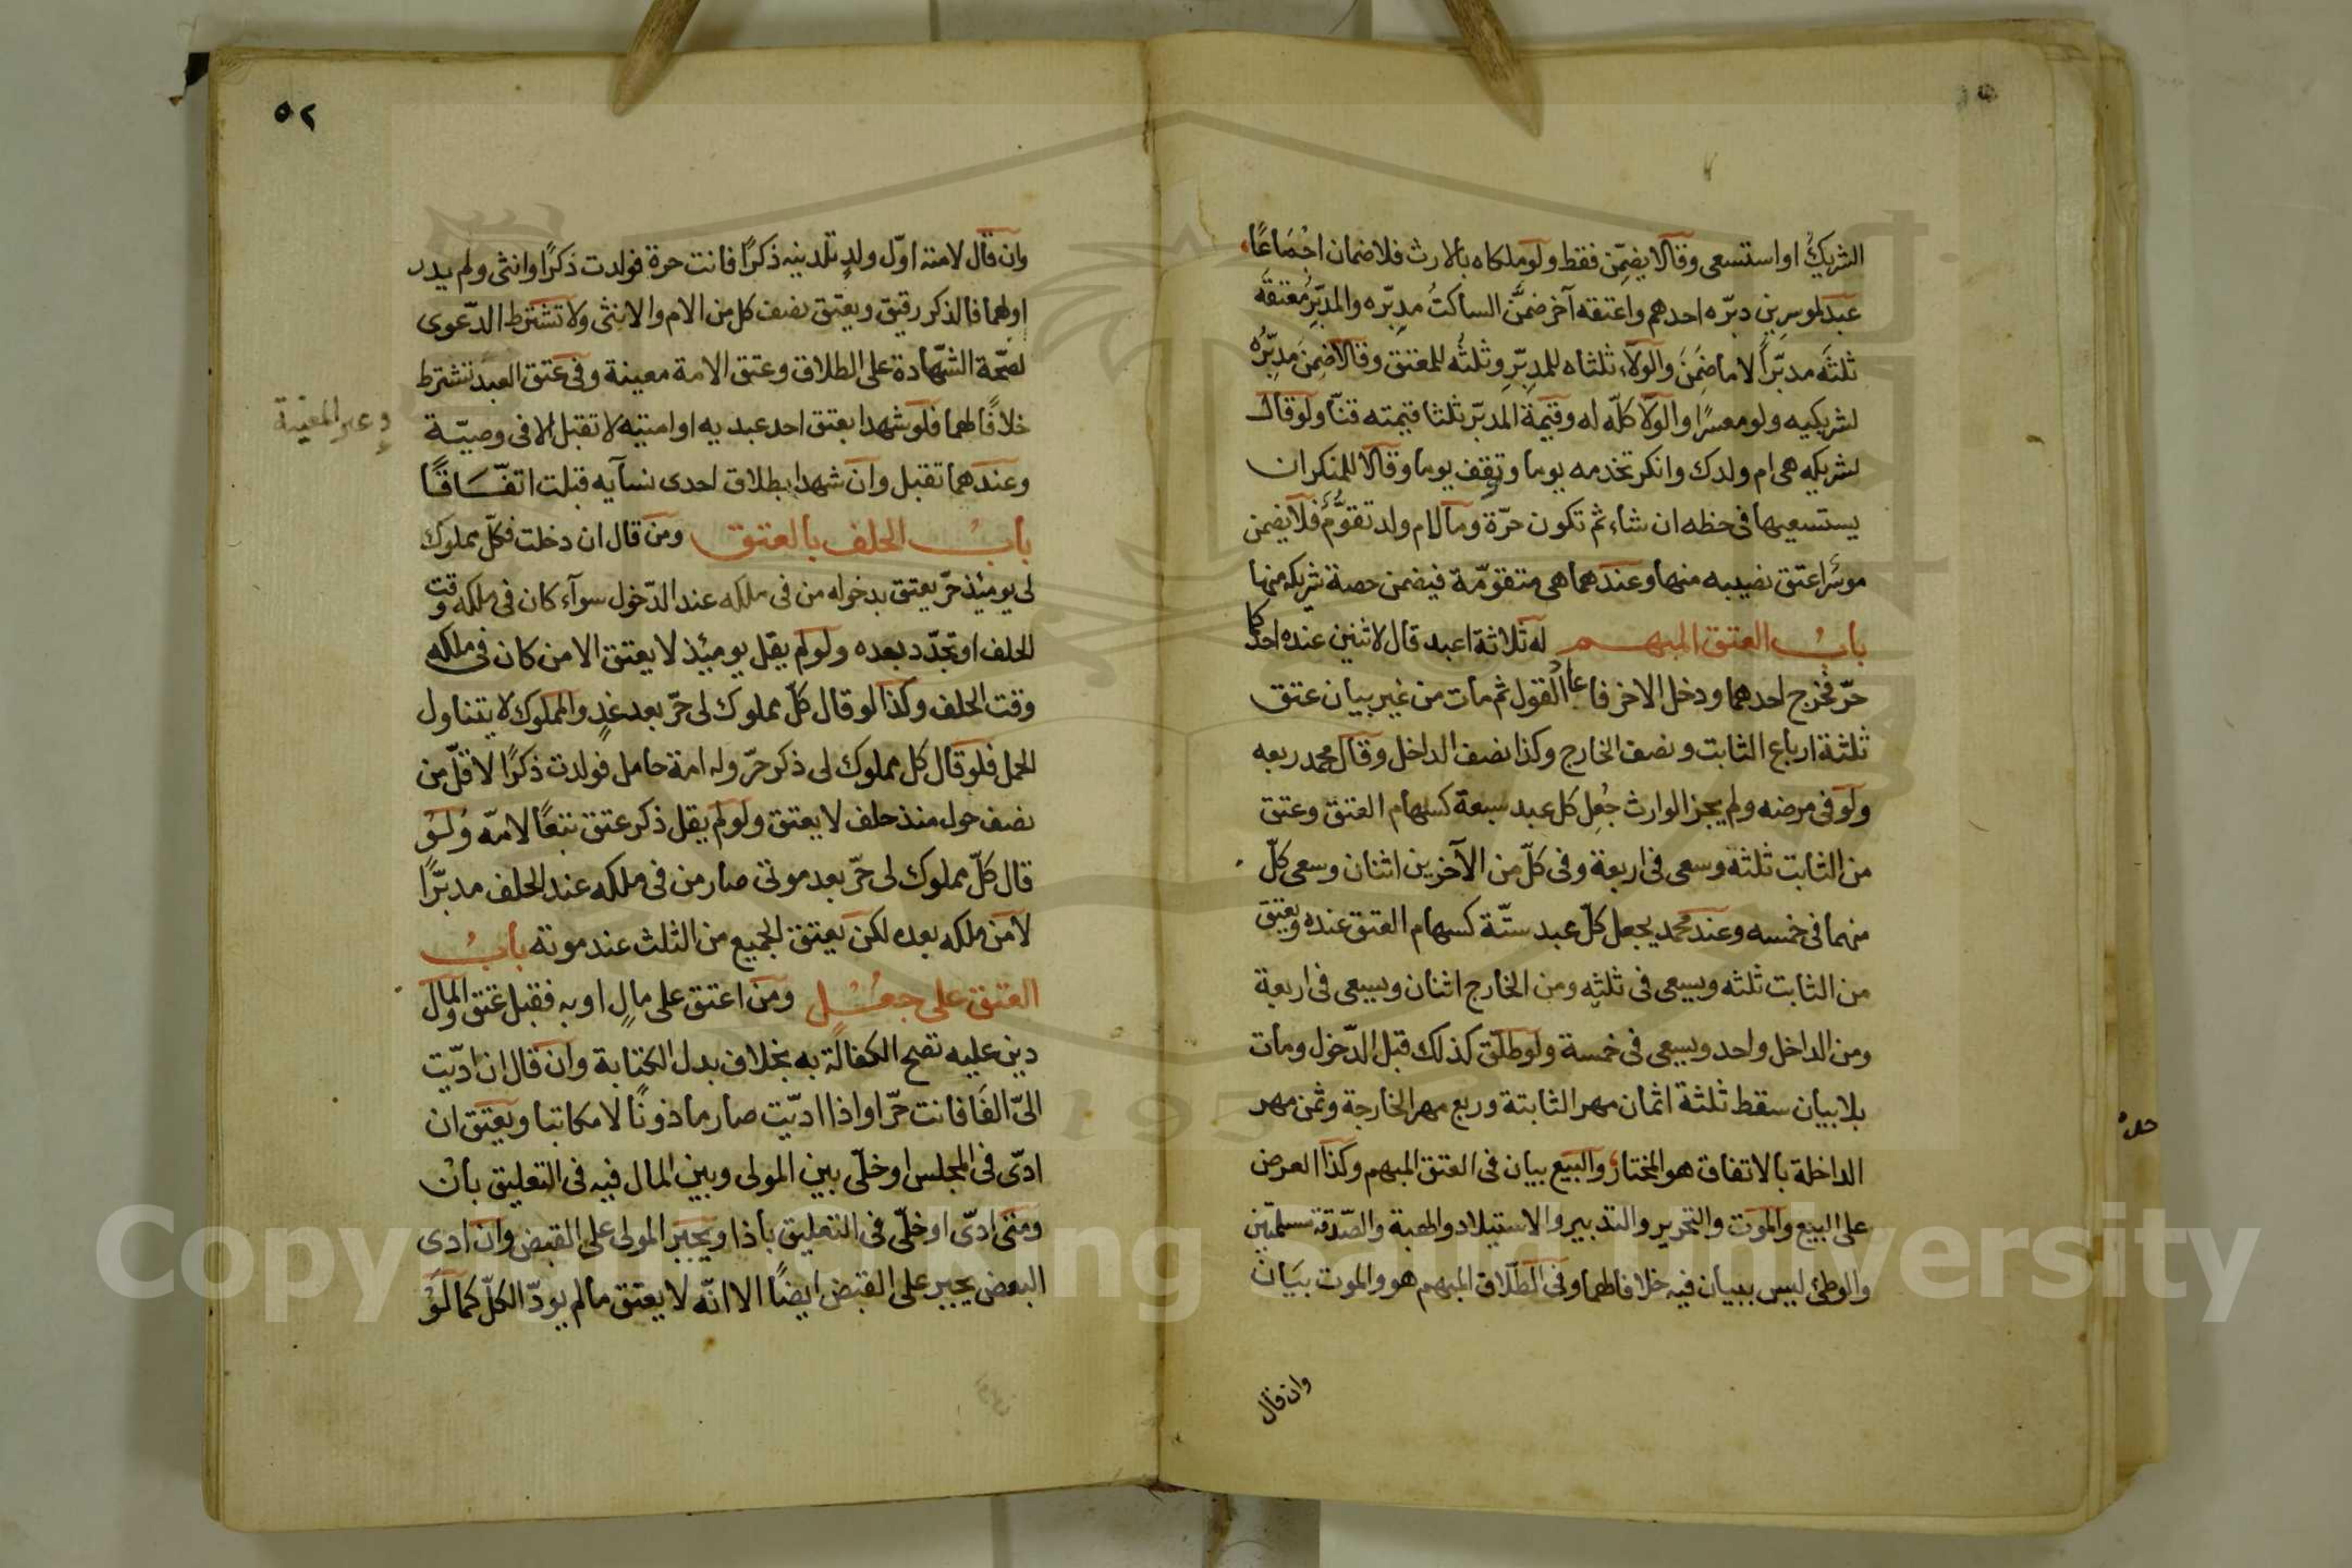 الشريكُ او استسعى وقالا يضمّن فقط ولو ملكاه بالارث فلا ضمان اجْمَاعًا
عبد لموسرين دبّره احدهم واعتقه آخر ضمَّن الساكتُ مدبّره والمدبّرُ معتقَه
ثلثَه مدبّراً لا ما ضَمِنَ والولاء ثلثاه للمدبّرِ وثلثُه للمعتق وقالا ضمِنَ مدبّرُه
لشريكيه ولو معسرًا والولا كلّه له وقيمة المدبّر ثلثا قيمته قنّا ولو قال
لشريكه هى ام ولدك وانكر تخدمه يوما وتقف يوما وقالا للمنكر ان
يستسعيها فى حظه ان شاء ثم تكون حرّة وما لام ولد تقوُّمٌ فلا يضمن
موسر اعتق نصيبه منها وعندهما هى متقوّمة فيضمن حصة شريكه منها
بابُ العتق المبهم له ثلاثة اعبد قال لاثنين عنده احدكما
حرّ فخرج احدهما ودخل الاخر فاعاد القول ثم مات من غير بيان عتق
ثلثة ارباع الثابت ونصف الخارج وكذا نصف الداخل وقال محمد ربعه
ولو فى مرضه ولم يجز الوارث جُعِل كل عبد سبعة كسهام العتق وعتق
من الثابت ثلثة وسعى فى اربعة وفى كلّ من الآخرين اثنان وسعى كلّ
منهما فى خمسه وعند محمد يجعل كلّ عبد ستّة كسهام العتق عنده ويعتق
من الثابت ثلثه ويسعى فى ثلثه ومن الخارج اثنان ويسعى فى اربعة
ومن الداخل واحد ويسعى فى خمسة ولو طلّق كذلك قبل الدّخول ومات
بلا بيان سقط ثلثة اثمان مهر الثابتة وربع مهر الخارجة وثمن مهر
الداخلة بالاتفاق هو المختار والبيع بيان فى العتق المبهم وكذا العرض
على البيع والموت والتحرير والتدبير والاستيلاد والهبة والصّدقة مسلمّتين
والوطئ ليس ببيان فيه خلافا لهما وفى الطّلاق المبهم هو والموت بيَان
وان قال
٥٢
وان قال لامته اوّل ولدٍ تلدينه ذكرًا فانت حرة فولدت ذكرًا وانثى ولم يدر
اولهما فالذكر رقيق ويعتق نصف كل من الام والانثى ولا تشترط الدّعوى
لصحّة الشّهادة على الطلاق وعتق الامة معينة وفى عتق العبد تشترط
خلافًا لهما فلو شهدا بعتق احد عبديه او امتيه لا تقبل الا فى وصيّة
وعندهما تقبل وان شهدا بطلاق احدى نسآيه قبلت اتفّاقًا
بابُ الحلف بالعتق ومن قال ان دخلت فكلّ مملوك
لى يومئذ حرّ يعتق بدخوله من فى ملكه عند الدّخول سوآء كان فى ملكه وقت
الحلف او تجدّد بعده ولو لم يقل يومئذ لا يعتق الا من كان فى ملكه
وقت الحلف وكذا لو قال كلّ مملوك لى حرّ بعد غدٍ والمملوك لا يتناول
الحمل فلو قال كل مملوك لى ذكر حرّ وله امة حامل فولدت ذكرًا لاقلّ من
نصف حول منذ حلف لا يعتق ولو لم يقل ذكر عتق تبعًا لامّه ولو
قال كلّ مملوك لى حرّ بعد موتى صار من فى ملكه عند الحلف مدبّرًا
لا من ملكه بعده لكن يعتق الجميع من الثلث عند موته بابُ
العتق على جعل ومن اعتق على مالٍ او به فقبل عتق والمال
دين عليه تصح الكفالة به بخلاف بدل الكتابة وان قال ان ادّيت
الىّ الفًا فانت حرّ او اذا ادّيت صار ماذونًا لا مكاتبا ويعتق ان
ادّى فى المجلس او خلّى بين المولى وبين المال فيه فى التعليق بان
ومتى ادّى او خلّى فى التعليق باذا ويجبر المولى على القبض وان ادى
البعض يجبر على القبض ايضًا الا انّه لا يعتق ما لم يودّ الكلّ كما لو
Copyright © King Saud University
1957